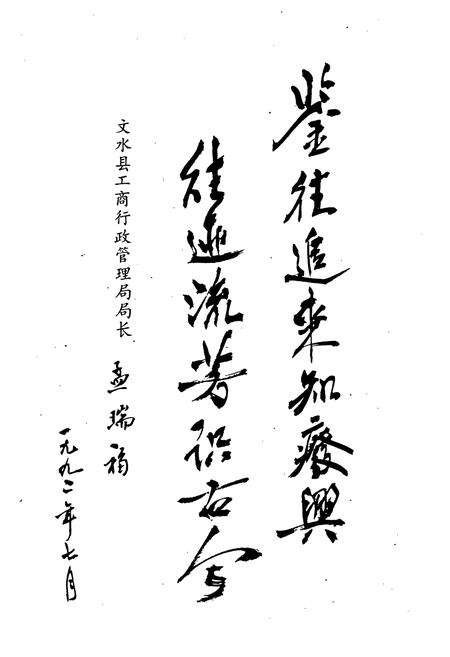 鉴往追来知废興
往迹流芳识古今
文水县工商行政管理局局长 孟瑞福
一九九二年七月